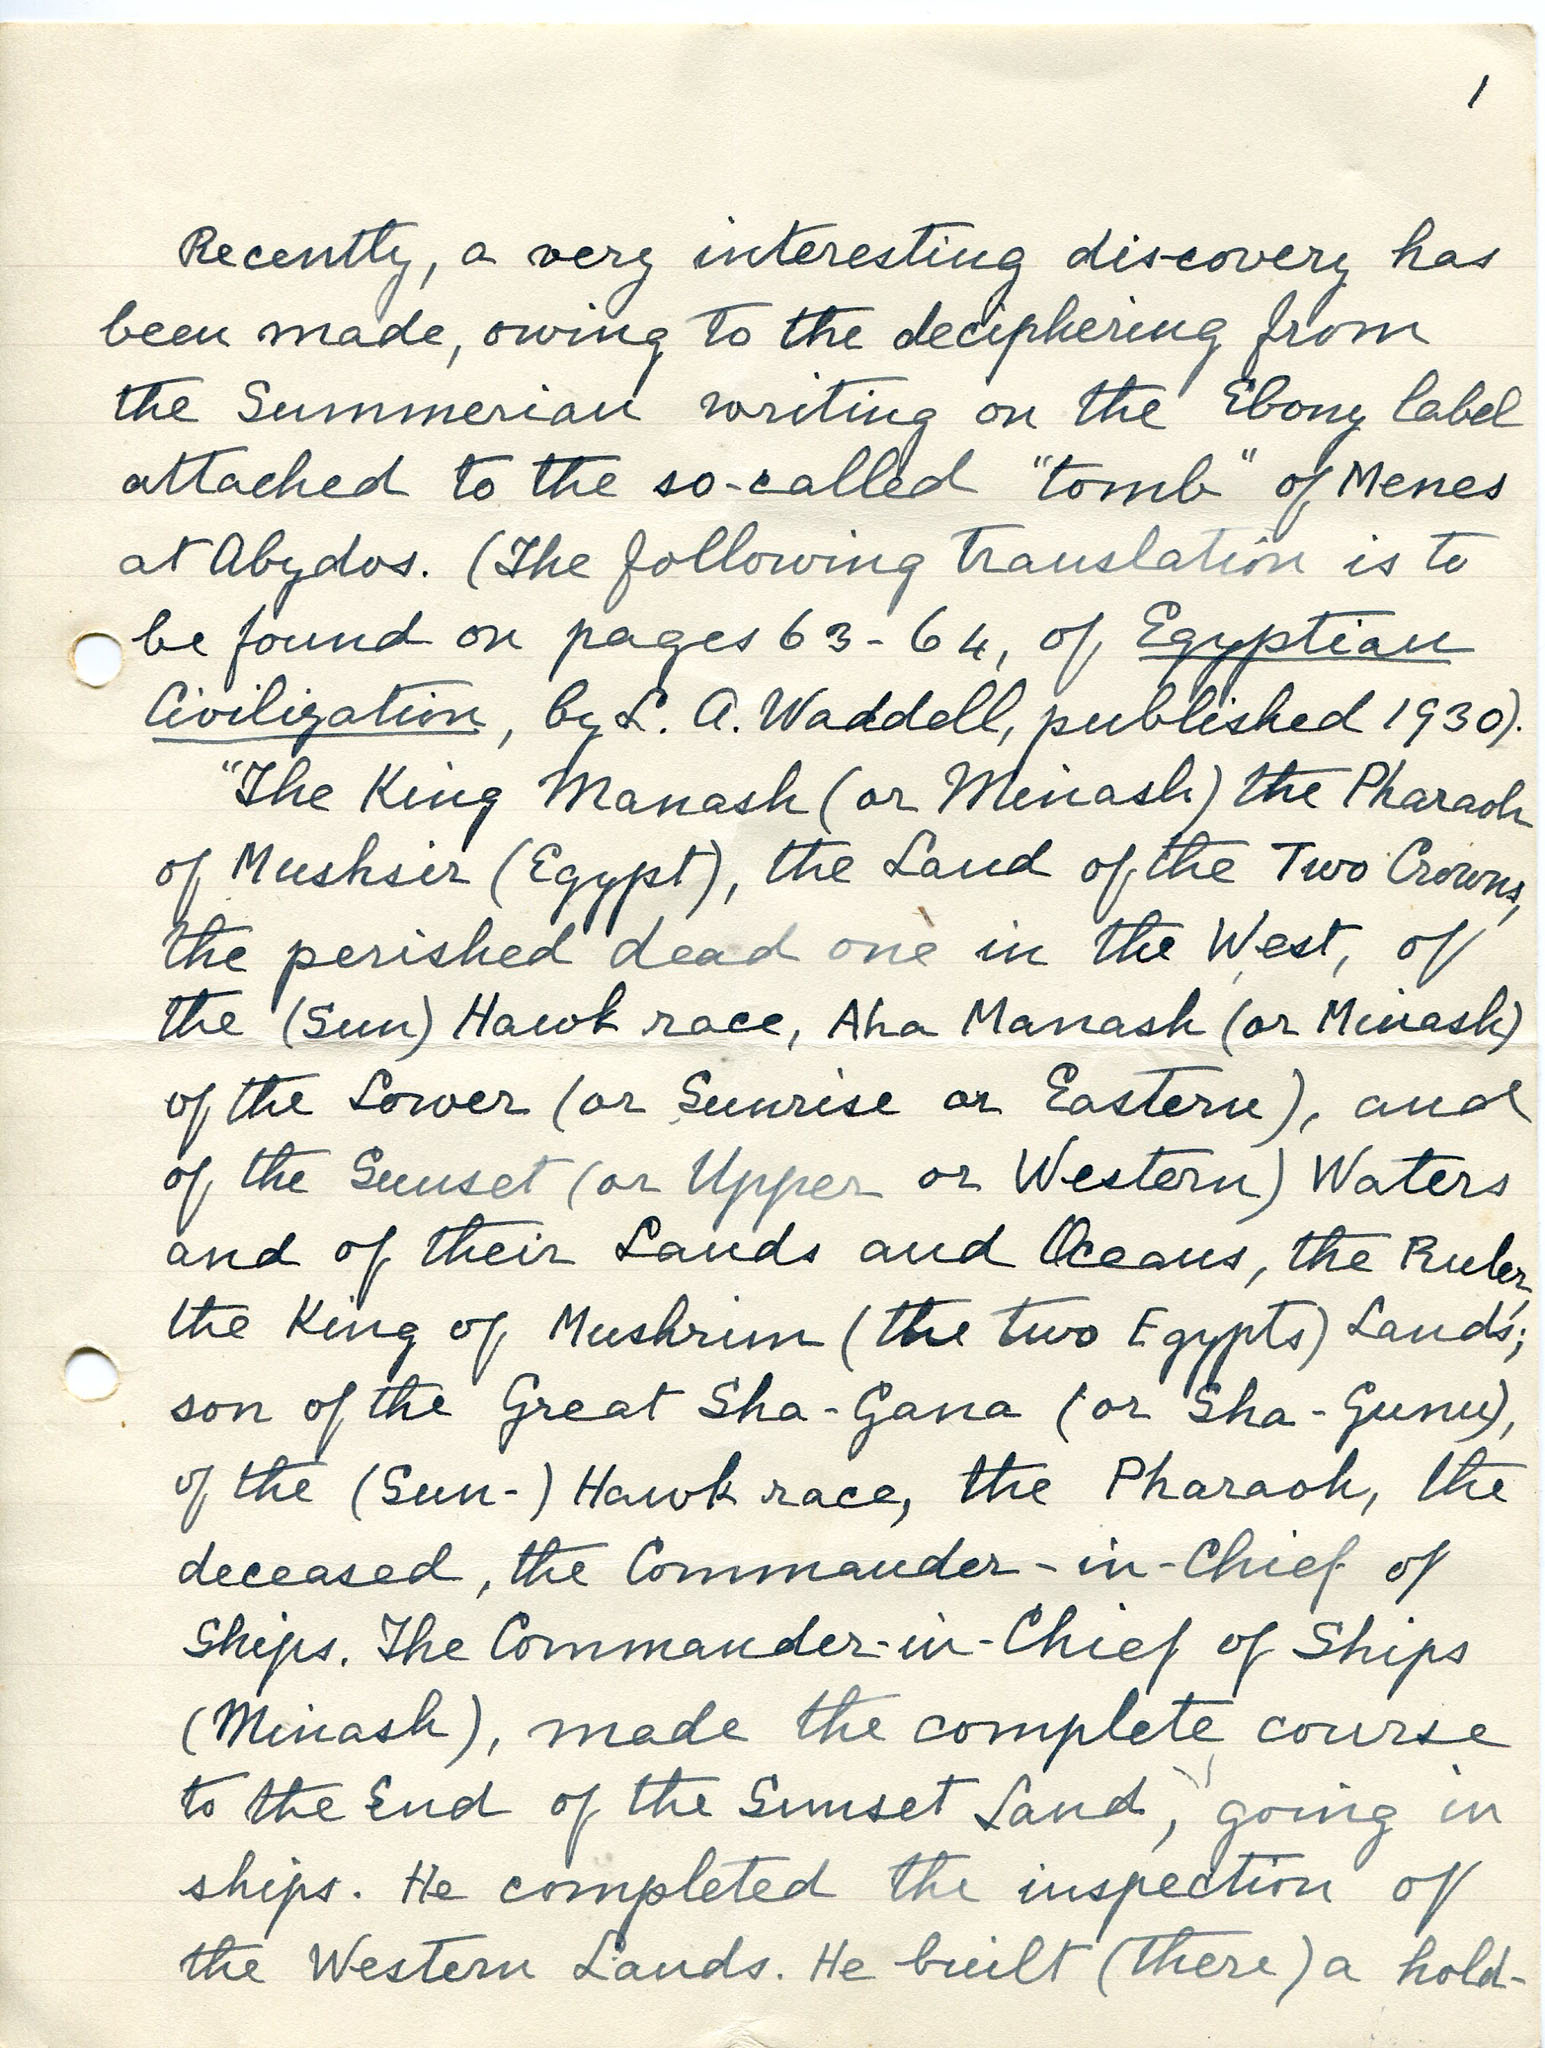 1
Recently, a very interesting discovery has
been made, owing to the deciphering from
the Summerian writing on the Ebony label
attached to the so-called "tomb" of Menes
at Abydos. (The following translation is to
be found on pages 63-64, of Egyptian
Civilization, by L. A. Waddell, published 1930).
"The King Manash (or Minash) the Pharaoh
of Mushsir (Egypt), the Land of the Two Crowns,
the perished dead one in the West, of
the (Sun) Hawk race, Aha Manash (or Minash)
of the Lower (or Sunrise or Eastern), and
of the Sunset (or Upper or Western) Waters
and of their Lands and Oceans, the Ruler,
the King of Mushrim (the two Egypts) Lands;
son of the Great Sha-Gana (or Sha-Gunu),
of the (Sun-) Hawk race, the Pharaoh, the
deceased, the Commander-in-Chief of
Ships. The Commander-in-Chief of Ships
(Minash), made the complete course
to the End of the Sunset Land, going in
ships. He completed the inspection of
the Western Lands. He built (there) a hold-